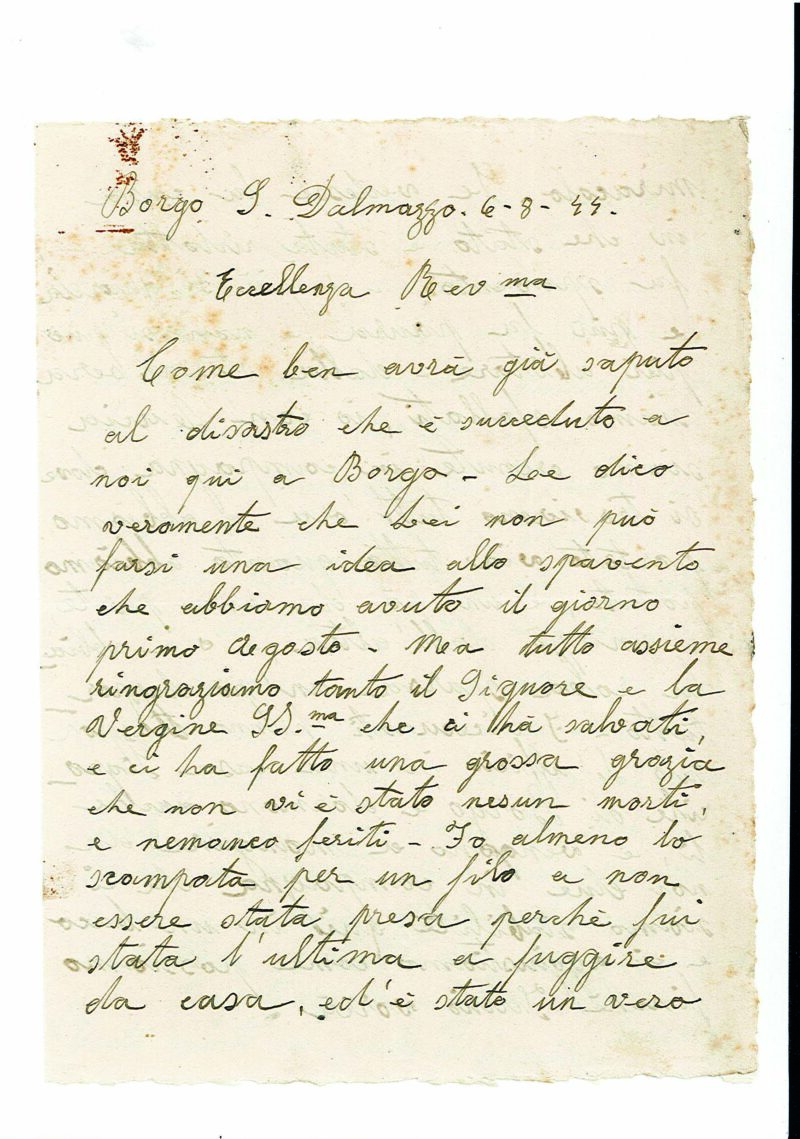 Borgo S. Dalmazzo. 6-8-44.
Eccellenza Rev ma
Come ben avrà già saputo
al disastro che è succeduto a
noi qui a Borgo - Le dico
veramente che Lei non può
farsi una idea allo spavento
che abbiamo avuto il giorno
primo Agosto - Mea tutto assieme
ringraziamo tanto il Signore e la
Vergine SS. ma che ci hà salvati,
e ci ha fatto una grossa grazia
che non vi è stato nesun morti,
e nemanco feriti - Io almeno lo
scampata per un filo a non
essere stata presa perchè fui
stata l'ultima a fuggire
da casa, ed'è stato un vero